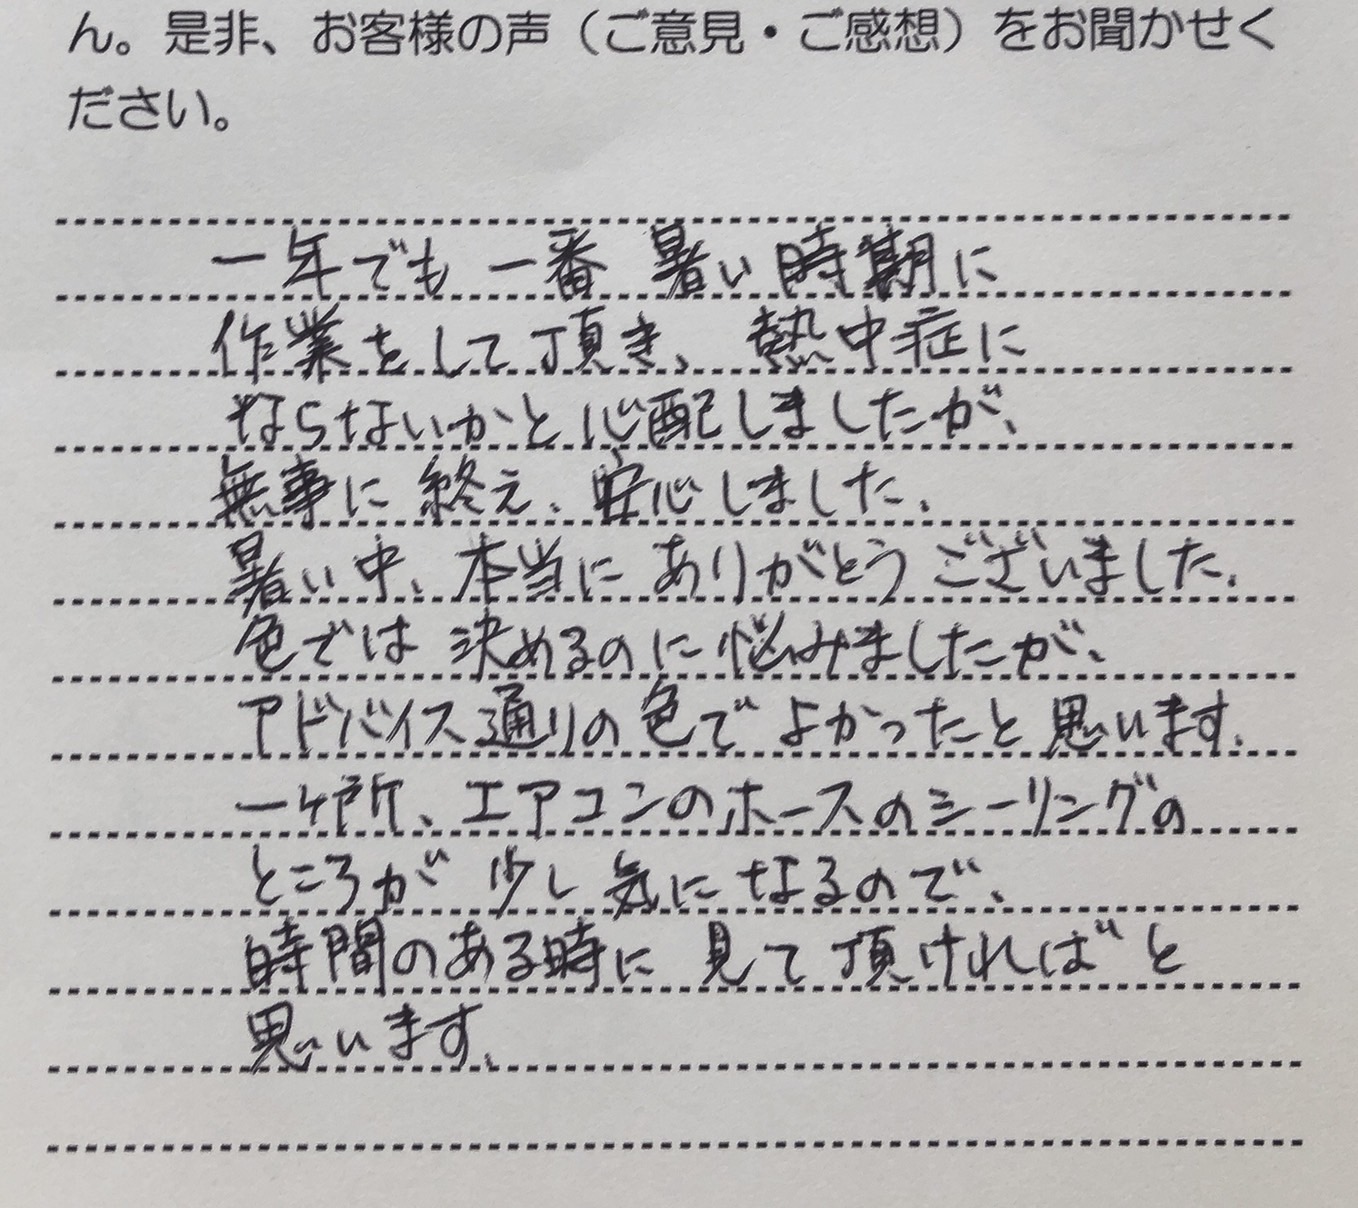 ん。是非、お客様の声（ご意見・ご感想）をお聞かせく
ださい。
一年でも一番 暑い時期に
作業をして頂き、熱中症に
ならないかと心配しましたが、
無事に終え、安心しました。
暑い中、本当にありがとうございました。
色では決めるのに悩みましたが、
アドバイス通りの色でよかったと思います。
一ヶ所、エアコンのホースのシーリングの
ところが少し気になるので、
時間のある時に見て頂ければと
思います。